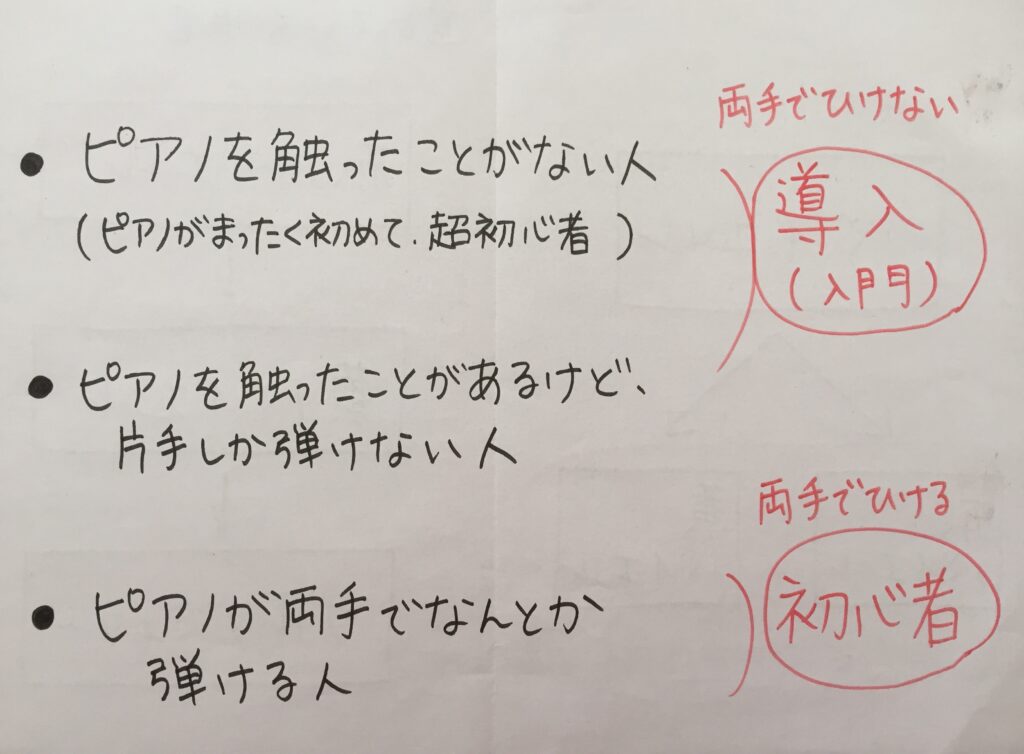 両手でひけない
● ピアノを触ったことがない人
(ピアノがまったく初めて.超初心者)
導入
(入門)
● ピアノを触ったことがあるけど、
片手しか弾けない人
両手でひける
● ピアノが両手でなんとか
弾ける人
初心者